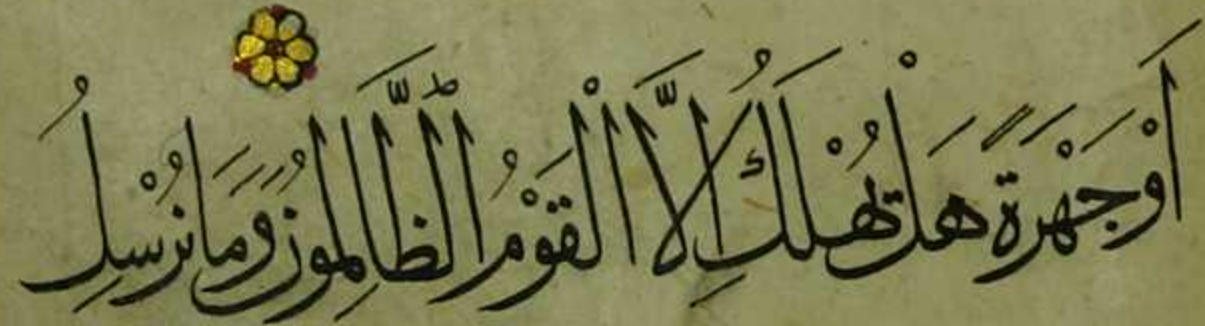 أَوْ جَهْرَةً هَلْ يُهْلَكُ إِلَّا الْقَوْمُ الظَّالِمُونَ وَمَا نُرْسِلُ